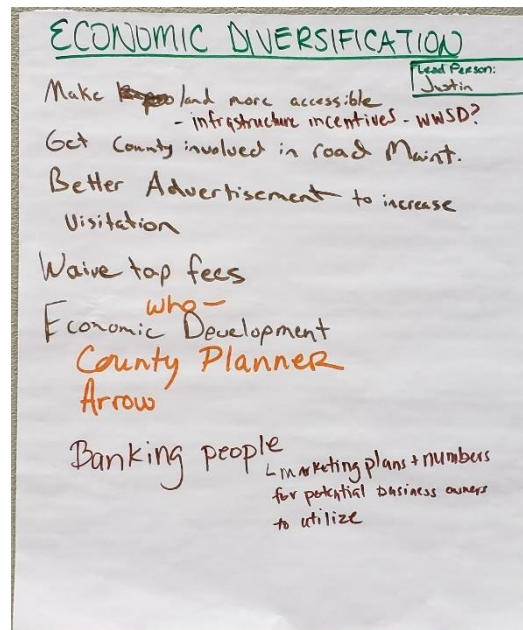 ECONOMIC DIVERSIFICATION
Lead Person:
Justin
Make land more accessible
- infrastructure incentives - WWSD?
Get County involved in road Maint.
Better Advertisement to increase
Visitation
Waive tap fees
who -
Economic Development
County Planner
Arrow
Banking people
marketing plans + numbers
for potential business owners
to utilize